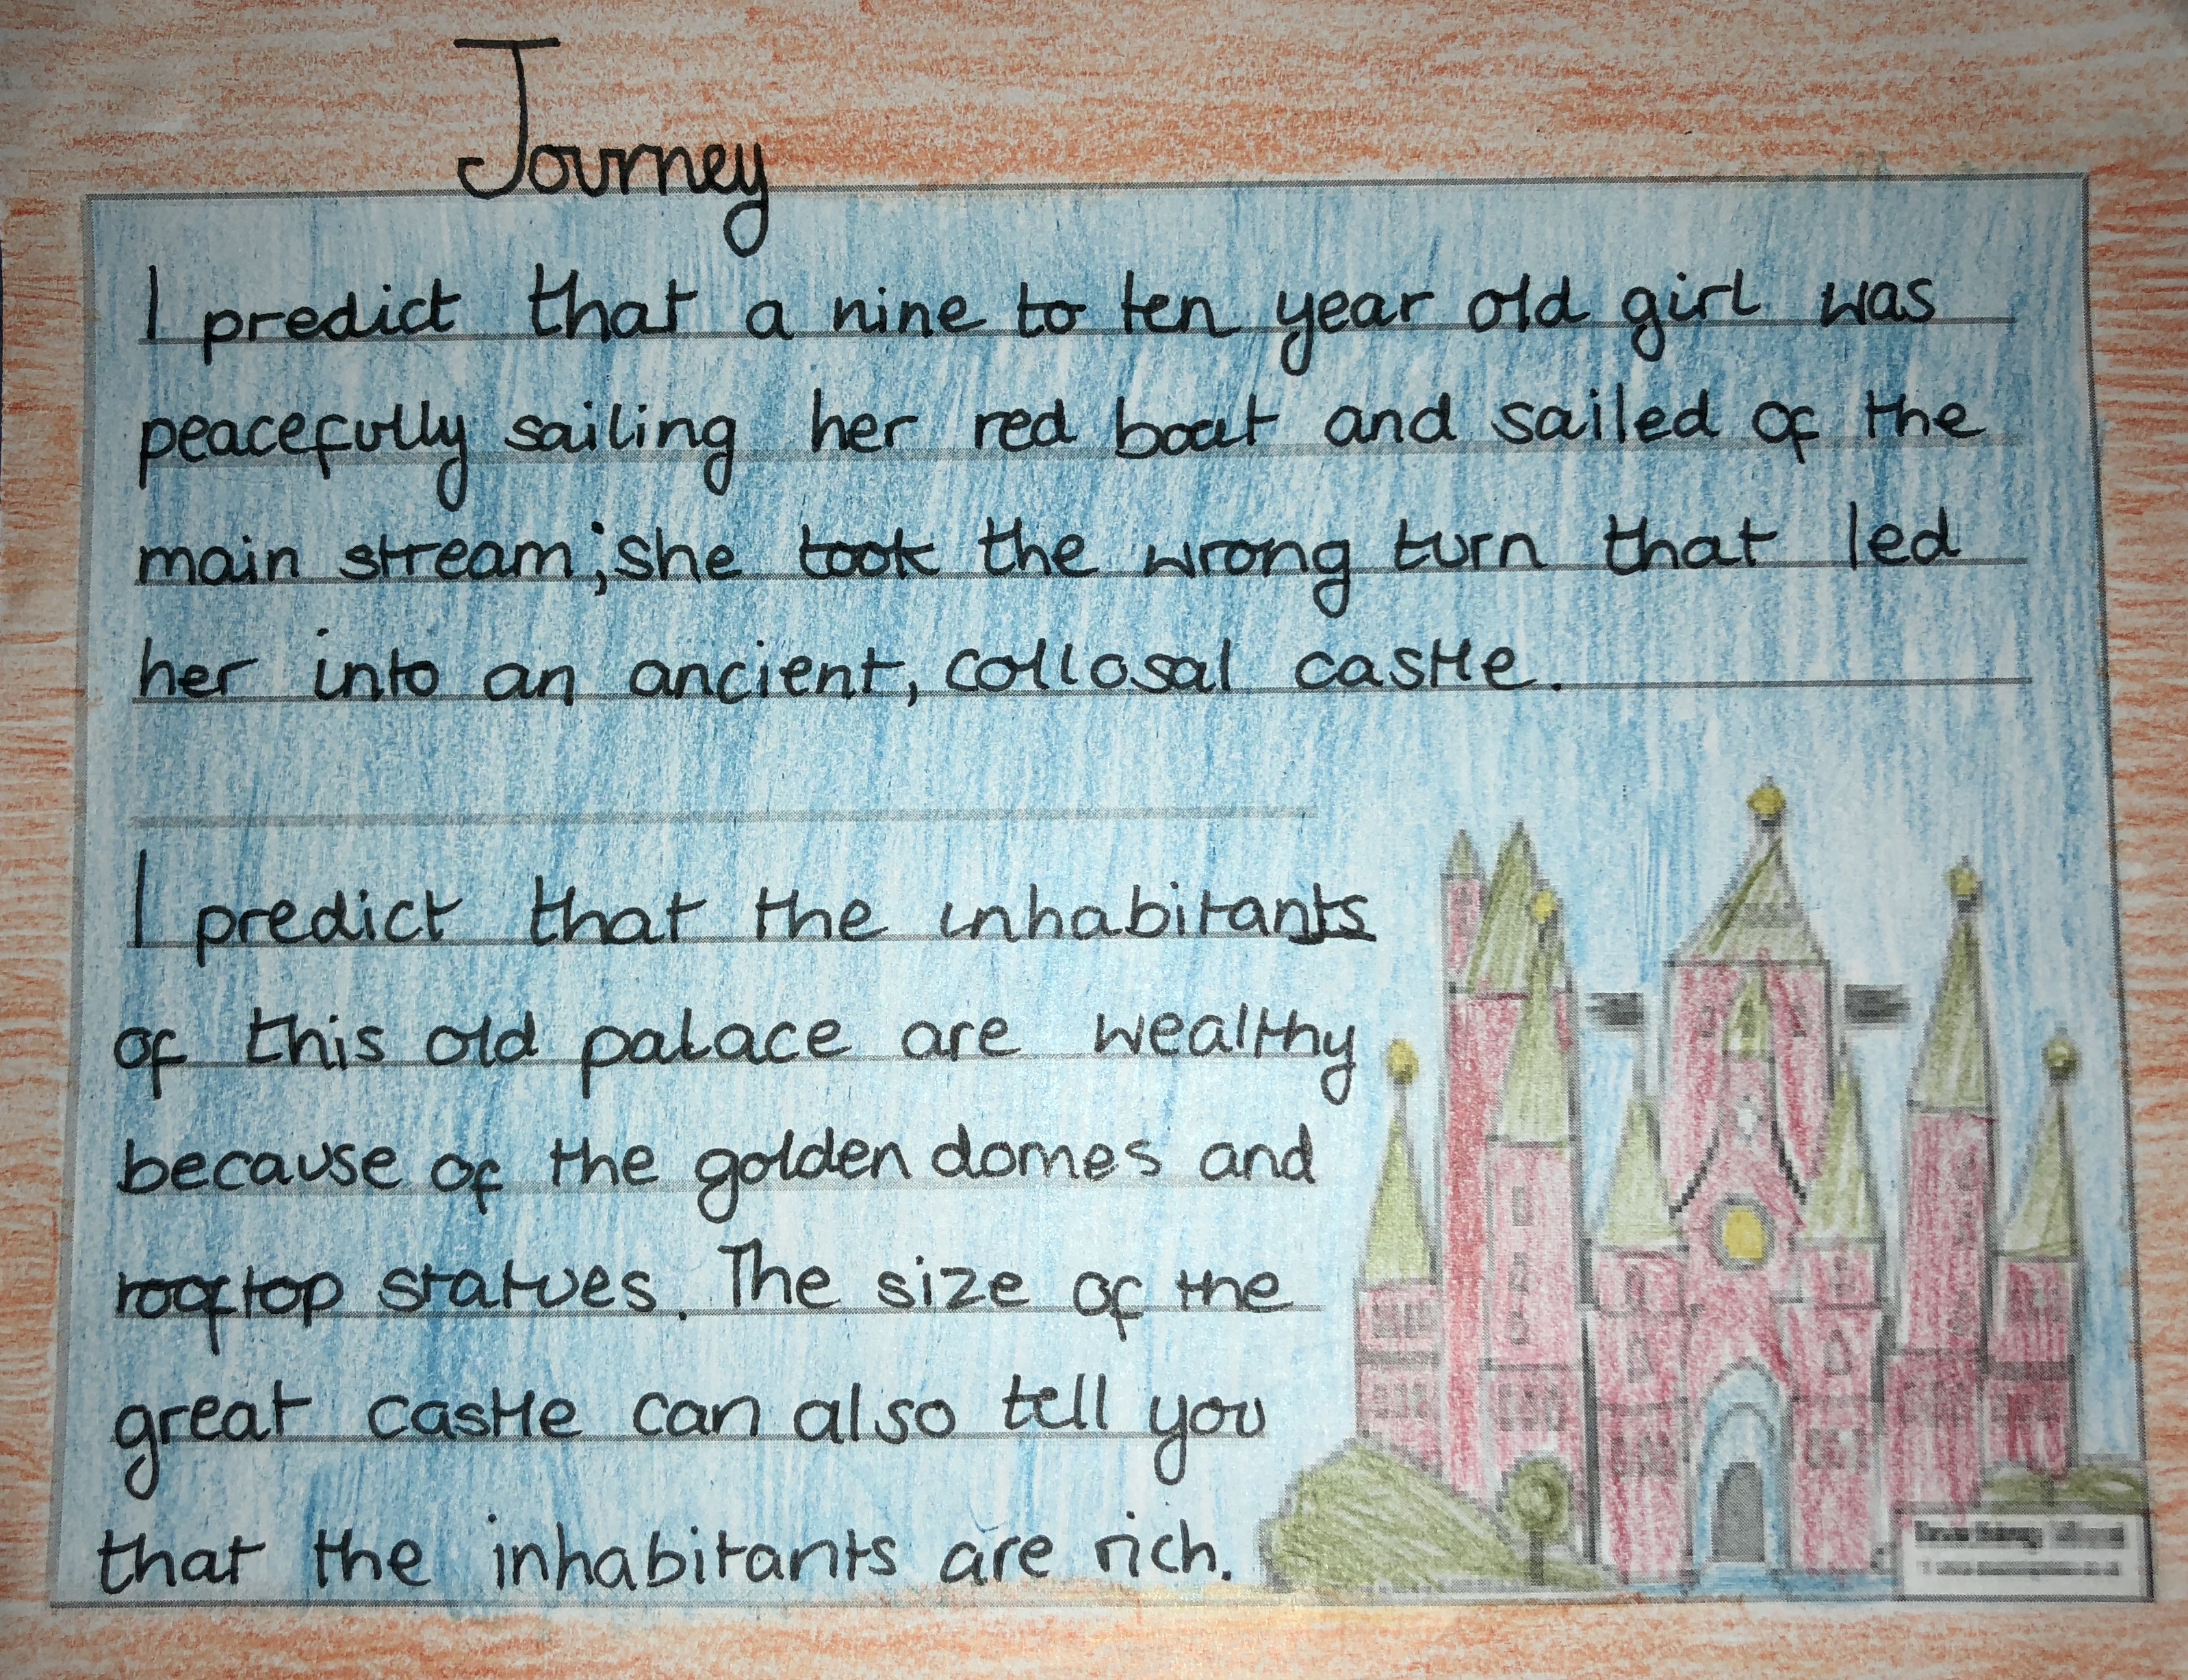 Journey
I predict that a nine to ten year old girl was
peacefully sailing her red boat and sailed of the
main stream; she took the wrong turn that led
her into an ancient, collosal castle.
I predict that the inhabitants
of this old palace are wealthy
because of the golden domes and
rooftop statues. The size of the
great castle can also tell you
that the inhabitants are rich.